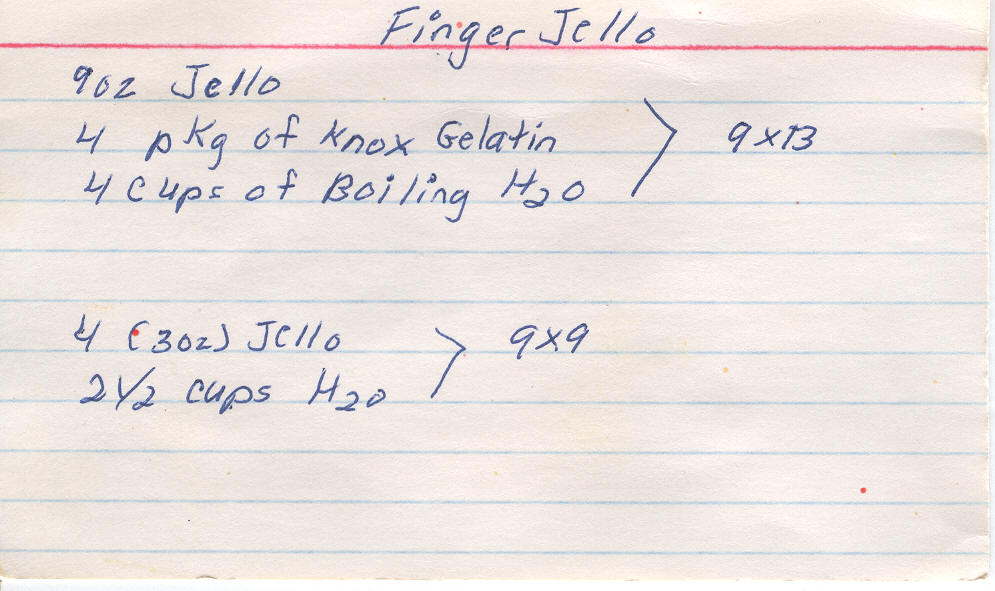 Finger Jello
9oz Jello
4 pkg of Knox Gelatin
4 cups of Boiling H2O
9x13
4 (3oz) Jello
2 1/2 cups H2O
9x9